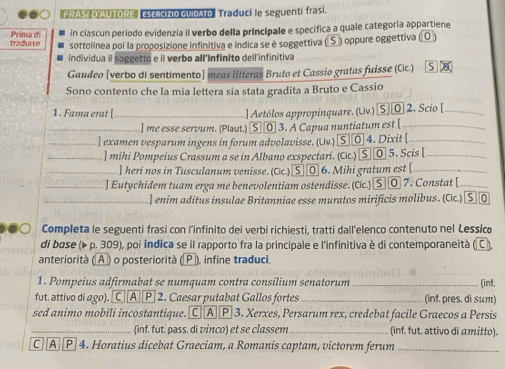 FRASI D'AUTORE ESERCIZIO GUIDATO Traduci le seguenti frasi.
Prima di tradurre
■ in ciascun periodo evidenzia il verbo della principale e specifica a quale categoria appartiene
■ sottolinea poi la proposizione infinitiva e indica se è soggettiva (S) oppure oggettiva (O)
■ individua il soggetto e il verbo all'infinito dell'infinitiva
Gaudeo [verbo di sentimento] meas litteras Bruto et Cassio gratas fuisse (Cic.) S O
Sono contento che la mia lettera sia stata gradita a Bruto e Cassio
1. Fama erat [____] Aetōlos appropinquare. (Liv.) S O 2. Scio [____
____] me esse servum. (Plaut.) S O 3. A Capua nuntiatum est [____
____] examen vesparum ingens in forum advolavisse. (Liv.) S O 4. Dixit [____
____] mihi Pompeius Crassum a se in Albano exspectari. (Cic.) S O 5. Scis [____
____] heri nos in Tusculanum venisse. (Cic.) S O 6. Mihi gratum est [____
____] Eutychidem tuam erga me benevolentiam ostendisse. (Cic.) S O 7. Constat [____
____] enim aditus insulae Britanniae esse muratos mirificis molibus. (Cic.) S O
Completa le seguenti frasi con l'infinito dei verbi richiesti, tratti dall'elenco contenuto nel Lessico
di base (▶ p. 309), poi indica se il rapporto fra la principale e l'infinitiva è di contemporaneità (C),
anteriorità (A) o posteriorità (P), infine traduci.
1. Pompeius adfirmabat se numquam contra consilium senatorum ____ (inf.
fut. attivo di ago). C A P 2. Caesar putabat Gallos fortes ____ (inf. pres. di sum)
sed animo mobili incostantique. C A P 3. Xerxes, Persarum rex, credebat facile Graecos a Persis
____ (inf. fut. pass. di vinco) et se classem ____ (inf. fut. attivo di amitto).
C A P 4. Horatius dicebat Graeciam, a Romanis captam, victorem ferum ____